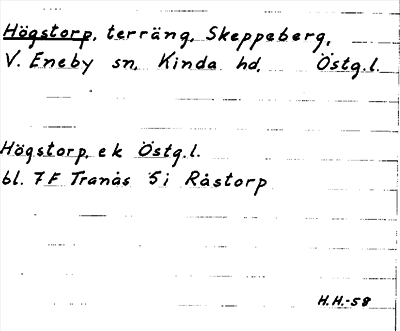 Högstorp, terräng, Skeppeberg,
V. Eneby sn, Kinda hd, Östg.l.
Högstorp, ek Östg.l.
bl. 7F Tranås 5i Råstorp
H.H.-58